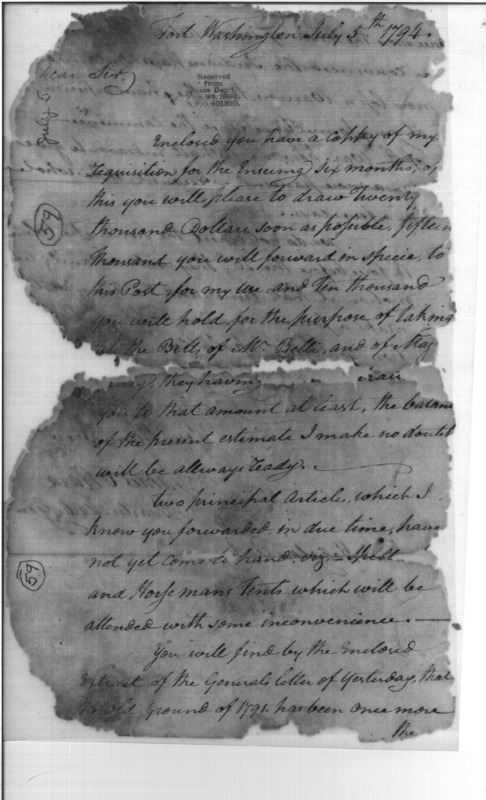 Fort Washington July 5th 1794.
Dear Sir,
Received
from
State Dept.
July 5
Enclosed you have a coppy of my
requisition for the Ensuing Six months, of
this you will please to draw Twenty
59
thousand Dollars soon as possible, fifteen
thousand you will forward in specie, to
this Post, for my use and Ten thousand
you will hold, for the purpose of taking
the Bills, of Mr Belli, and of
they having
you to that amount at least, the balance
of the present estimate I make no doubt
will be allways ready.
two principal Article, which I
know you forwarded, in due time, have
not yet come to hand. viz.
59
and Horsemans tents which will be
attended with some inconvenience.
You will find by the Enclosed
Extract of the Generals letter of Yesterday, that
Ground of 1791. has been once more
the